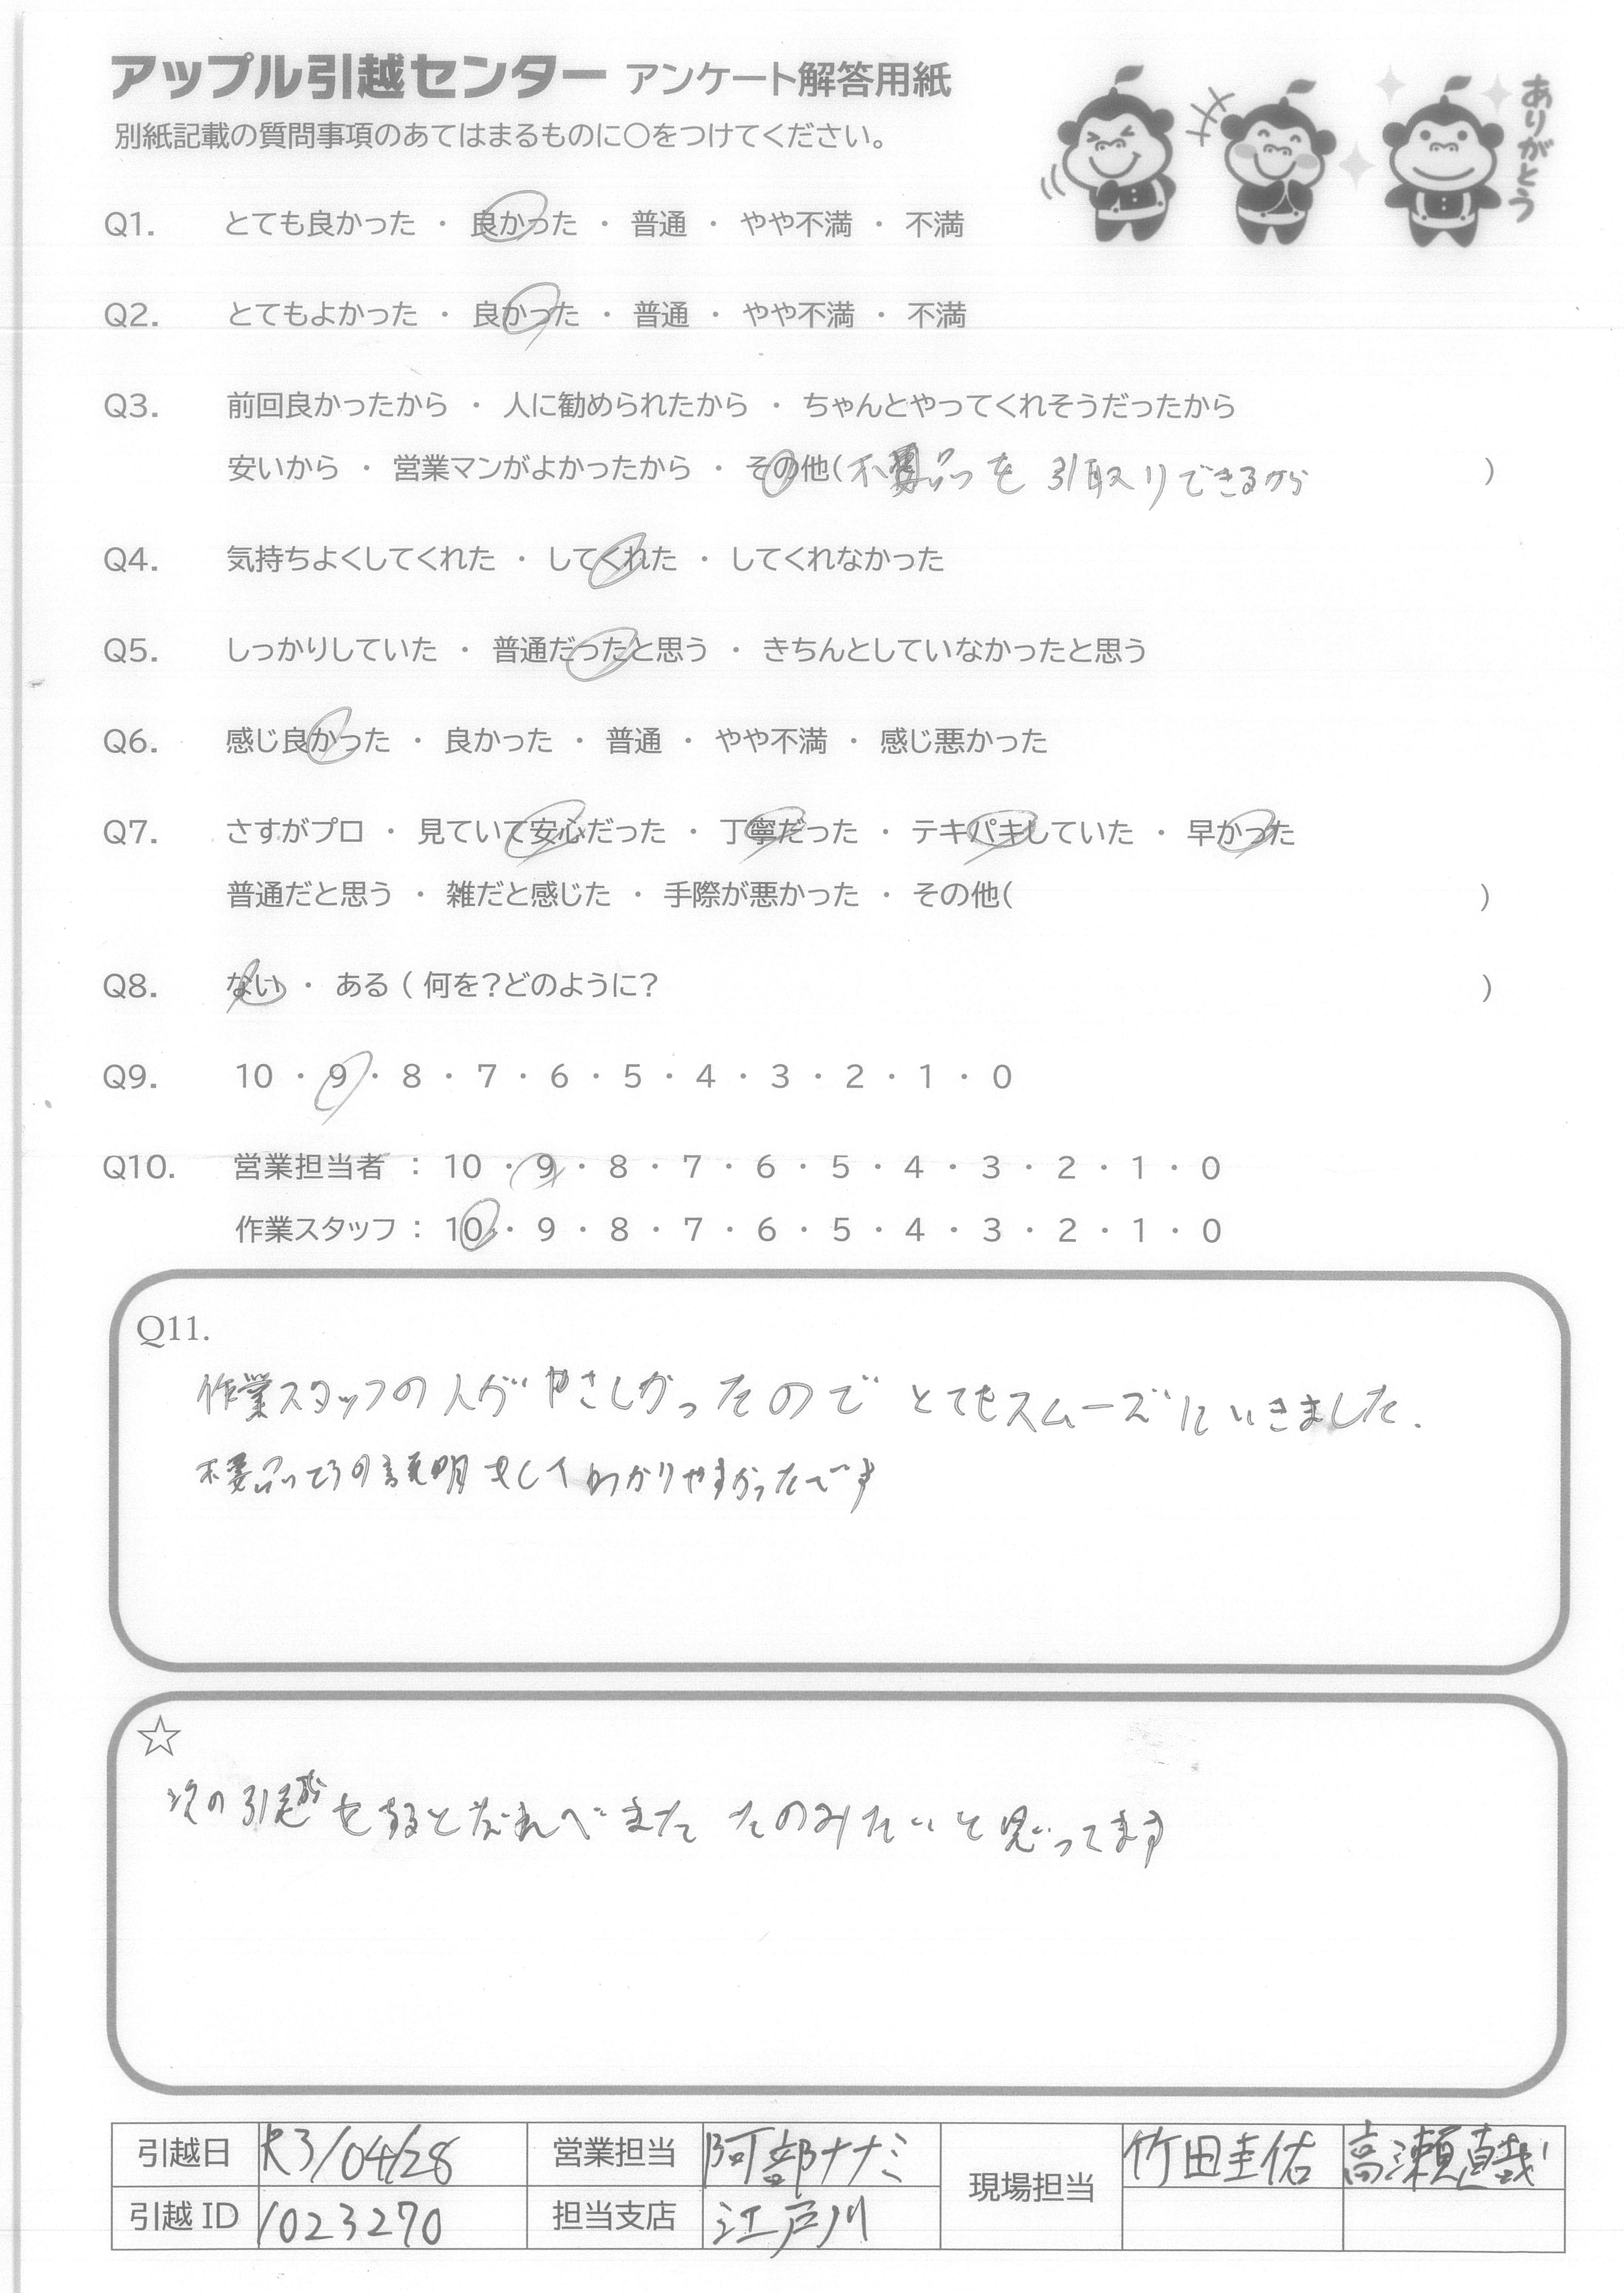 アップル引越センター アンケート解答用紙
別紙記載の質問事項のあてはまるものに○をつけてください。
ありがとう
Q1. とても良かった ・ 良かった ・ 普通 ・ やや不満 ・ 不満
Q2. とてもよかった ・ 良かった ・ 普通 ・ やや不満 ・ 不満
Q3. 前回良かったから ・ 人に勧められたから ・ ちゃんとやってくれそうだったから
安いから ・ 営業マンがよかったから ・ その他(不要品を引取りできるから )
Q4. 気持ちよくしてくれた ・ してくれた ・ してくれなかった
Q5. しっかりしていた ・ 普通だったと思う ・ きちんとしていなかったと思う
Q6. 感じ良かった ・ 良かった ・ 普通 ・ やや不満 ・ 感じ悪かった
Q7. さすがプロ ・ 見ていて安心だった ・ 丁寧だった ・ テキパキしていた ・ 早かった
普通だと思う ・ 雑だと感じた ・ 手際が悪かった ・ その他( )
Q8. ない ・ ある ( 何を?どのように? )
Q9. 10 ・ 9 ・ 8 ・ 7 ・ 6 ・ 5 ・ 4 ・ 3 ・ 2 ・ 1 ・ 0
Q10. 営業担当者 : 10 ・ 9 ・ 8 ・ 7 ・ 6 ・ 5 ・ 4 ・ 3 ・ 2 ・ 1 ・ 0
作業スタッフ : 10 ・ 9 ・ 8 ・ 7 ・ 6 ・ 5 ・ 4 ・ 3 ・ 2 ・ 1 ・ 0
Q11.
作業スタッフの人がやさしかったので とてもスムーズにいきました.
不要品 の説明 して わかりやすかったです
☆
次の引越をするとなればまた たのみたいと思ってます
引越日 R3/04/28 営業担当 阿部ナナミ 現場担当 竹田圭佑 高瀬直哉
引越 ID 1023270 担当支店 江戸川